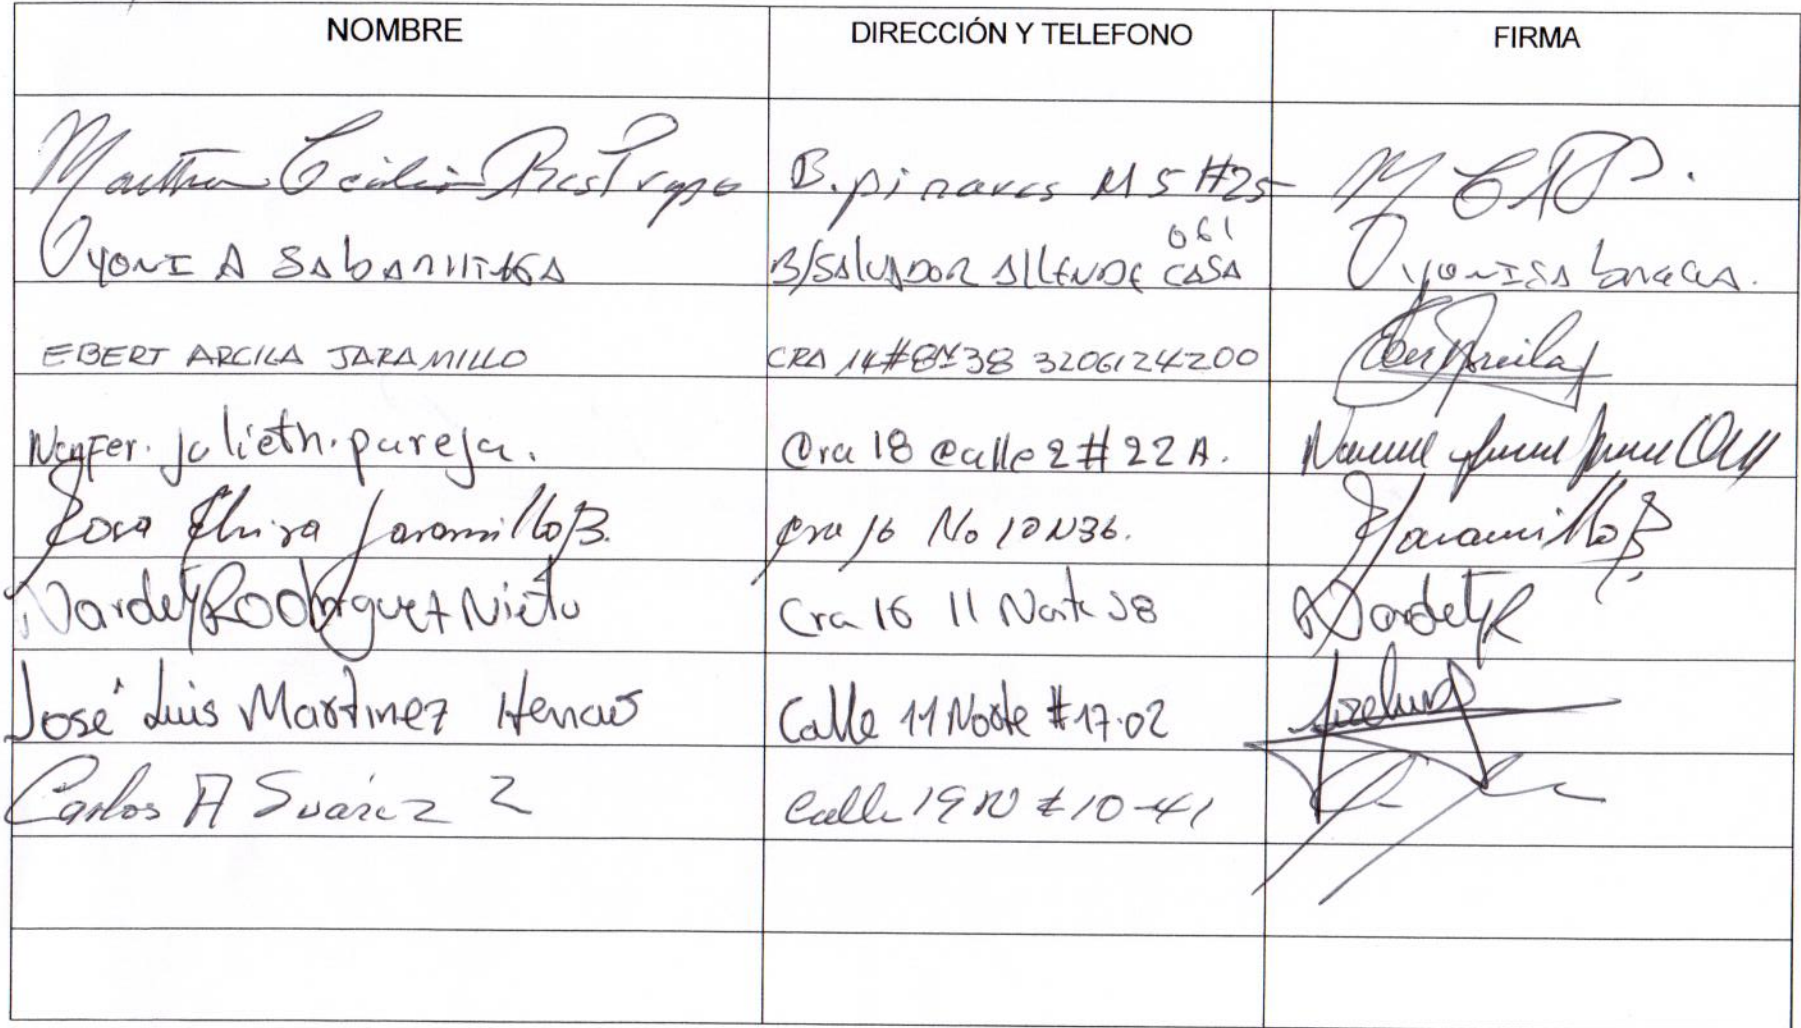 NOMBRE DIRECCIÓN Y TELEFONO FIRMA
Martha Cecilia Restrepo B. pinares M5 #25 M C R P.
061
YONI A SAbANIlla B/SALVADOR AllENDE CASA
EBERT ARCILA JARAMILLO CRA 14#8N38 3206124200 Eber Arcila
julieth. pareja. Cra 18 Calle 2 # 22 A.
Rosa Elvira Jaramillo B. Cra 16 No 10N36. Jaramillo B
Nardely Rodriguez Nieto Cra 16 11 Norte 38 Nardely R
José Luis Martinez Henao Calle 11 Norte #17-02
Carlos A Suárez Z Calle 19 N # 10-41